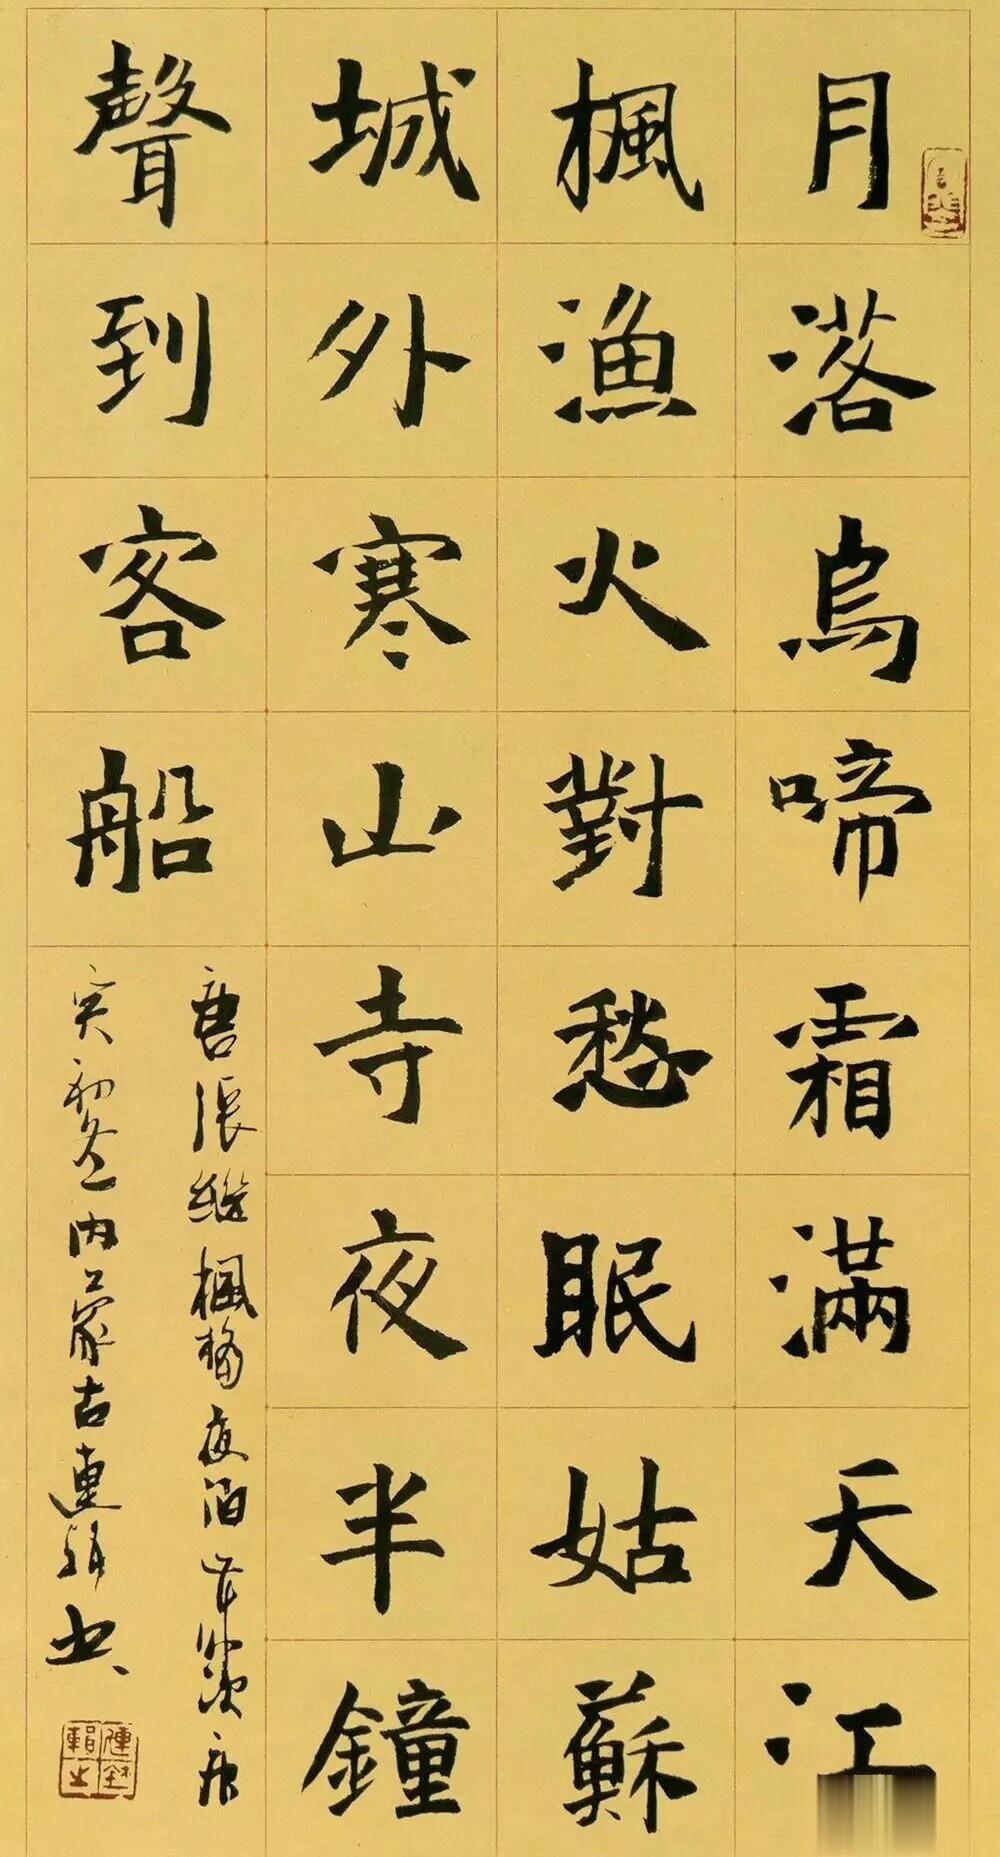 月落烏啼霜滿天江
楓漁火對愁眠姑蘇
城外寒山寺夜半鐘
聲到客船
唐張繼楓橋夜泊
内蒙古連輯書